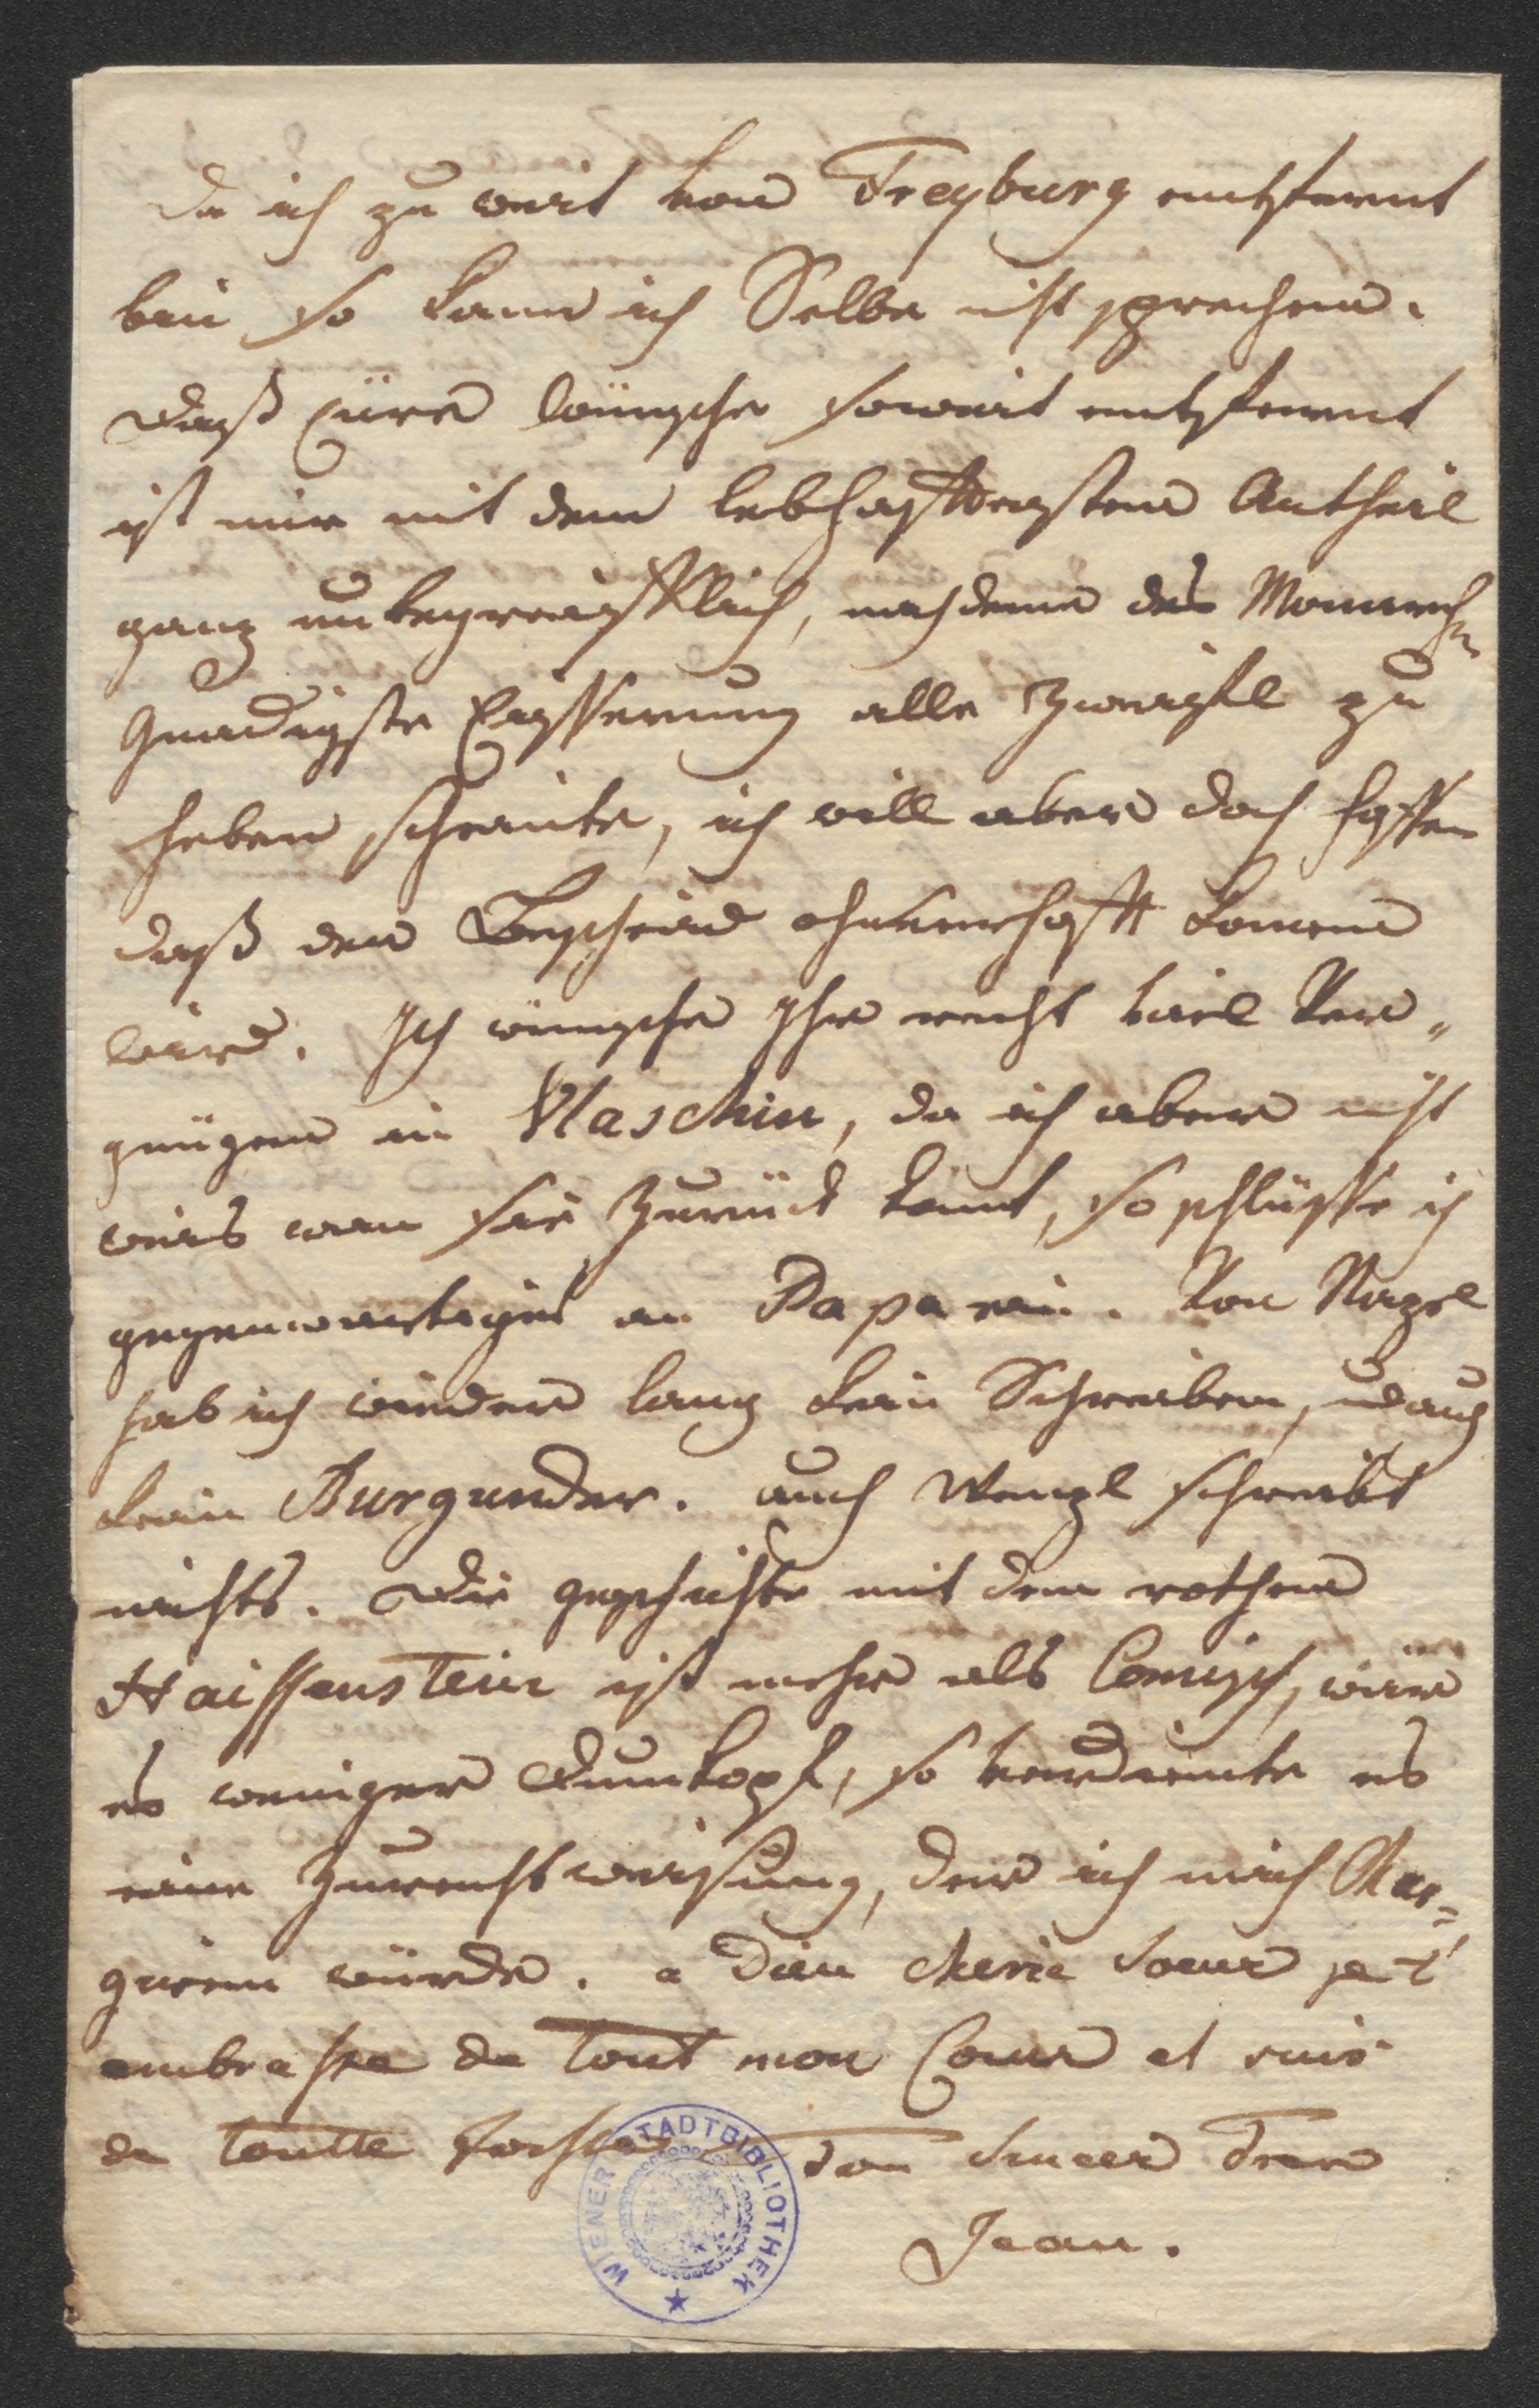 da ich zu weit von Freyburg entfernt
bin so kann ich Selbe nicht sprechen.
daß Eüre wünsche soweit entfernt
ist mir mit dem lebhafftesten Antheil
ganz unbegreifflich, nachdeme des Monarchen
Gnädigste Eüsserung alle Zweifel zu
heben scheinte, ich will aber doch hoffen
daß der Bescheid ohnfehlhafft komen
wird. Ich wünsche Ihr recht viel Ver„
gnügen in Vlaschin, da ich aber nicht
weis wan sie Zurück komt, so schlüsse ich
gegenwärtiges an Papa ein. Von Nazel
hab ich wieder lang kein Schreiben, und auch
kein Burgunder. auch Wenzl schreibt
nichts. die geschichte mit dem rothen
Haissenstein ist mehr als Comisch, wär
es weniger dumkopf, so verdiente es
eine Zurechtweisung, der ich mich Char=
gieren würde. a Dieu cherie Soeur je t'
embrasse de tout mon Coeur et suis
de toutte Ton Sincer Frere
Jean.
WIENER STADTBIBLIOTHEK